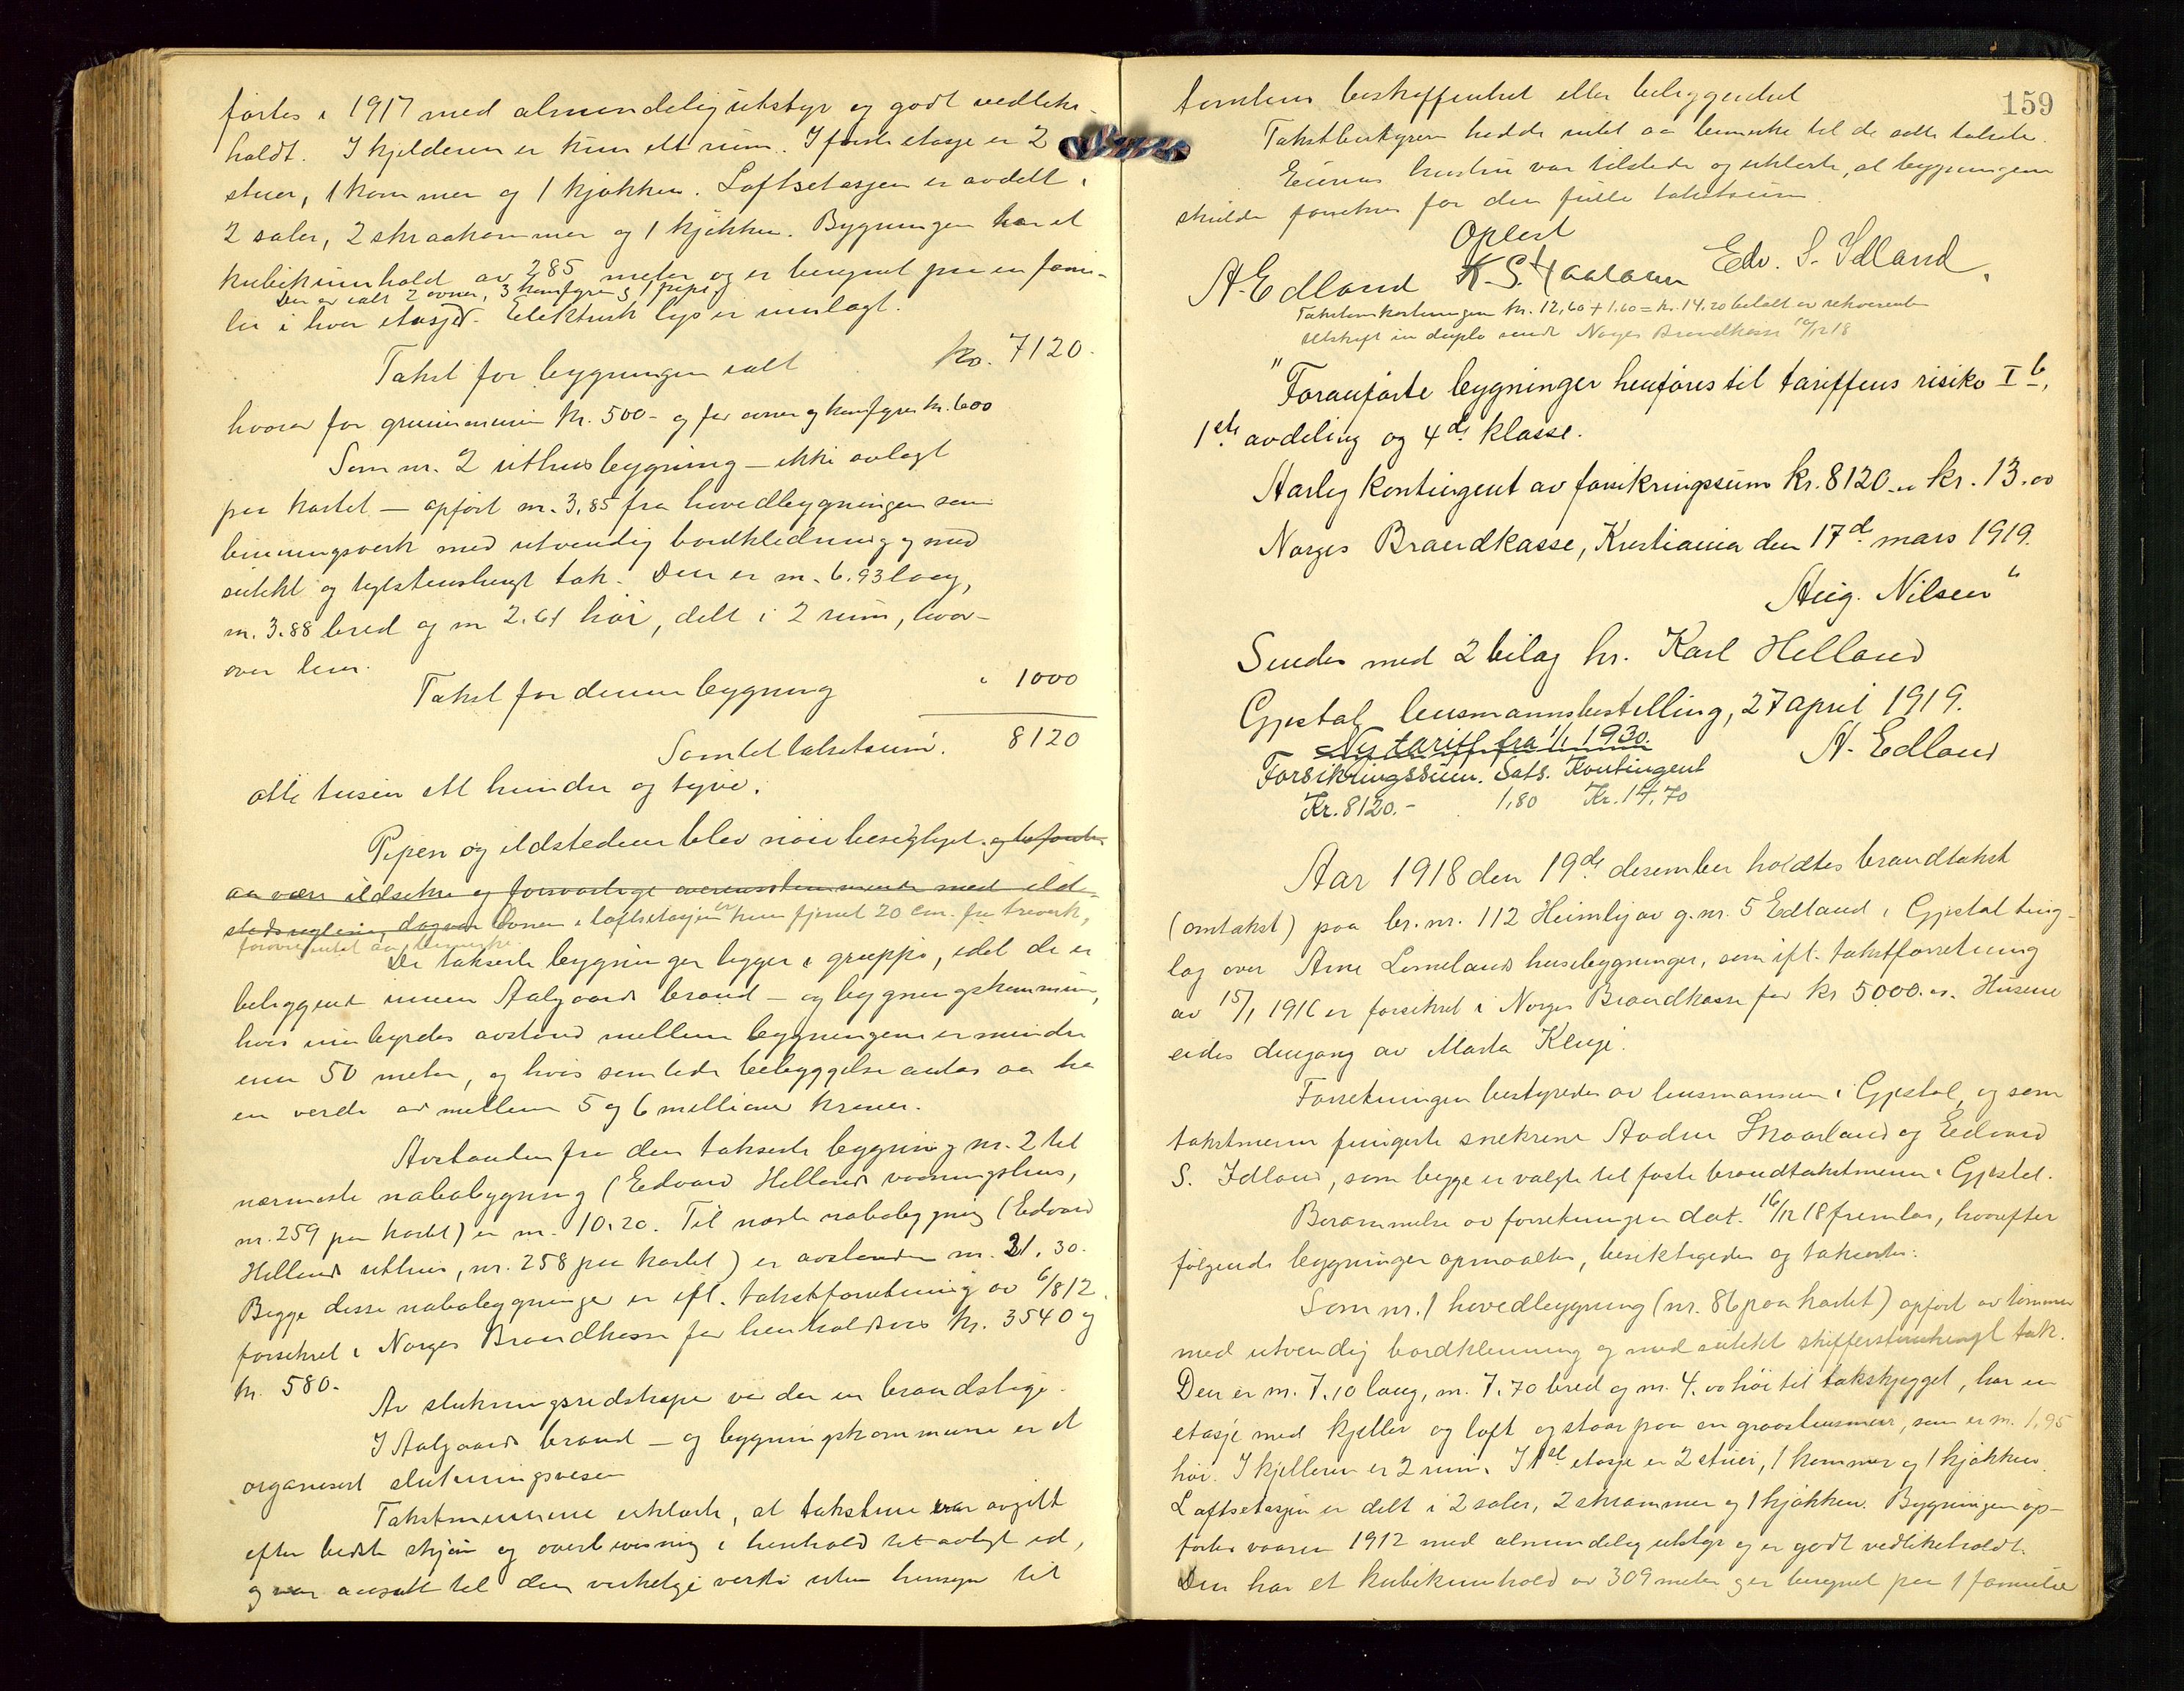 førtes i 1917 med almindelig utstyr og godt vedlike-
holdt. I kjelderen er kun ett rum. I første etasje er 2
stuer, 1 kammer og 1 kjøkken. Loftsetasjen er avdelt i
2 saler, 2 skraakammer og 1 kjøkken. Bygningen har et
kubikinnhold av 285 meter og er beregnet paa en fami-
Der er ialt 2 ovner, 3 komfyrer og 1 pipe
lie i hver etasje. Elektrisk lys er innlagt.
Takst for bygningen ialt kr. 7120.
hvorav for grunmuren kr. 500- og for ovner og komfyrer kr. 600
Som nr. 2 uthusbygning – ikke avlagt
paa kartet – opført m. 3,85 fra hovedbygningen som
binningsverk med utvendig bordkledning og med
sutekt og teglstenshengt tak. Den er m. 6.93 lang,
m. 3.88 bred og m 2.61 høi, delt i 2 rum, hvor-
over lem.
Takst for denne bygning " 1000
Samlet takstsum. 8120
otte tusen ett hundre og tyve.
Pipen og ildstedene blev nøie besigtiget og befundne
aa være ildsikre og forsvarlige overensstemmende med ild-
stedsregling, dog var ovnen i loftsetasjen kun fjernet 20 cm. fra treverk,
forøvrig intet aa bemerke.
De takserte bygninger ligger i gruppe, idet de er
beliggende innen Aalgaards brand- og bygningskommune,
hvis innbyrdes avstand mellem bygningene er mindre
enn 50 meter, og hvis samlede bebyggelse antas aa ha
en verdi av mellem 5 og 6 millioner kroner.
Avstanden fra den takserte bygning nr. 2 til
nærmeste nabobygning (Edvard Hellands vaaningshus,
nr. 259 paa kartet) er m. 10.20. Til næste nabobygning (Edvard
Hellands uthus, nr. 258 paa kartet) er avstanden m. 21.30.
Begge disse nabobygninger er ifl. takstforretning av 6/8 12
forsikret i Norges Brandkasse for henholdsvis kr. 3540 og
kr. 580.
Av slukningsredskaper var der en brandstige.
I Aalgaards brand- og bygningskommune er et
organisert slukningsvesen
Takstmennene erklærte, at takstene var avgitt
efter bedste skjøn og overbevisning i henhold til avlagt ed,
og var ansatt til den virkelige verdi uten hensyn til
159
tomtens beskaffenhet eller beliggenhet
Takstbestyreren hadde intet aa bemerke til de satte takster.
Eierens hustru var tilstede og erklærte, at bygningene
skulde forsikres for den fulle takstsum.
Oplest
A. Edland K. S. Edv. S. Idland.
Takstomkostningen kr. 12,60 + 1.60 = kr. 14.20 betalt av rekvirenten
Utskrift in duplo sendt Norges Brandkasse 19/12 18
"Foranførte bygninger henføres til tariffens risiko I b,
1ste avdeling og 4de klasse.
Aarlig kontingent av forsikringssum kr. 8120.- kr. 13.00
Norges Brandkasse, Kristiania den 17de mars 1919.
Aug. Nilsen"
Sendes med 2 bilag hr. Karl Helland
Gjestal lensmannsbestilling, 27 april 1919.
A. Edland
Ny tariff fra 1/1 1930.
Forsikringssum. Sats. Kontingent
Kr. 8120.- 1,80 Kr. 14,70
Aar 1918 den 19de desember holdtes brandtakst
(omtakst) paa br. nr. 112 Heimly av g. nr. 5 Edland i Gjestal ting-
lag over Arne Limelands husebygninger, som ifl. takstforretning
av 15/1 1916 er forsikret i Norges Brandkasse for kr 5000.00. Husene
eides dengang av Marta Kluge.
Forretningen bestyredes av lensmannen i Gjestal, og som
takstmenn fungerte snekrene Andreas Skaarland og Edvard
S. Idland, som begge er valgte til faste brandtakstmenn i Gjestal.
Berammelse av forretningen dat. 16/12 18 fremlas, hvorefter
følgende bygninger opmaaltes, besiktigedes og takertes:
Som nr. 1 hovedbygning (nr. 86 paa kartet) opført av tømmer
med utvendig bordklenning og med sutekt skifferstenhengt tak.
Den er m. 7.10 lang, m. 7.70 bred og m. 4.00 høi til takskjegget, har en
etasje med kjeller og loft og staar paa en graastensmur, som er m. 1,95
høi. I kjelleren er 2 rum. I 1ste etasje er 2 stuer, 1 kammer og 1 kjøkken.
Loftsetasjen er delt i 2 saler, 2 skrammer og 1 kjøkken. Bygningen op-
førtes vaaren 1912 med almindelig utstyr og er godt vedlikeholdt.
Den har et kubikinnhold av 309 meter og er beregnet paa 1 familie